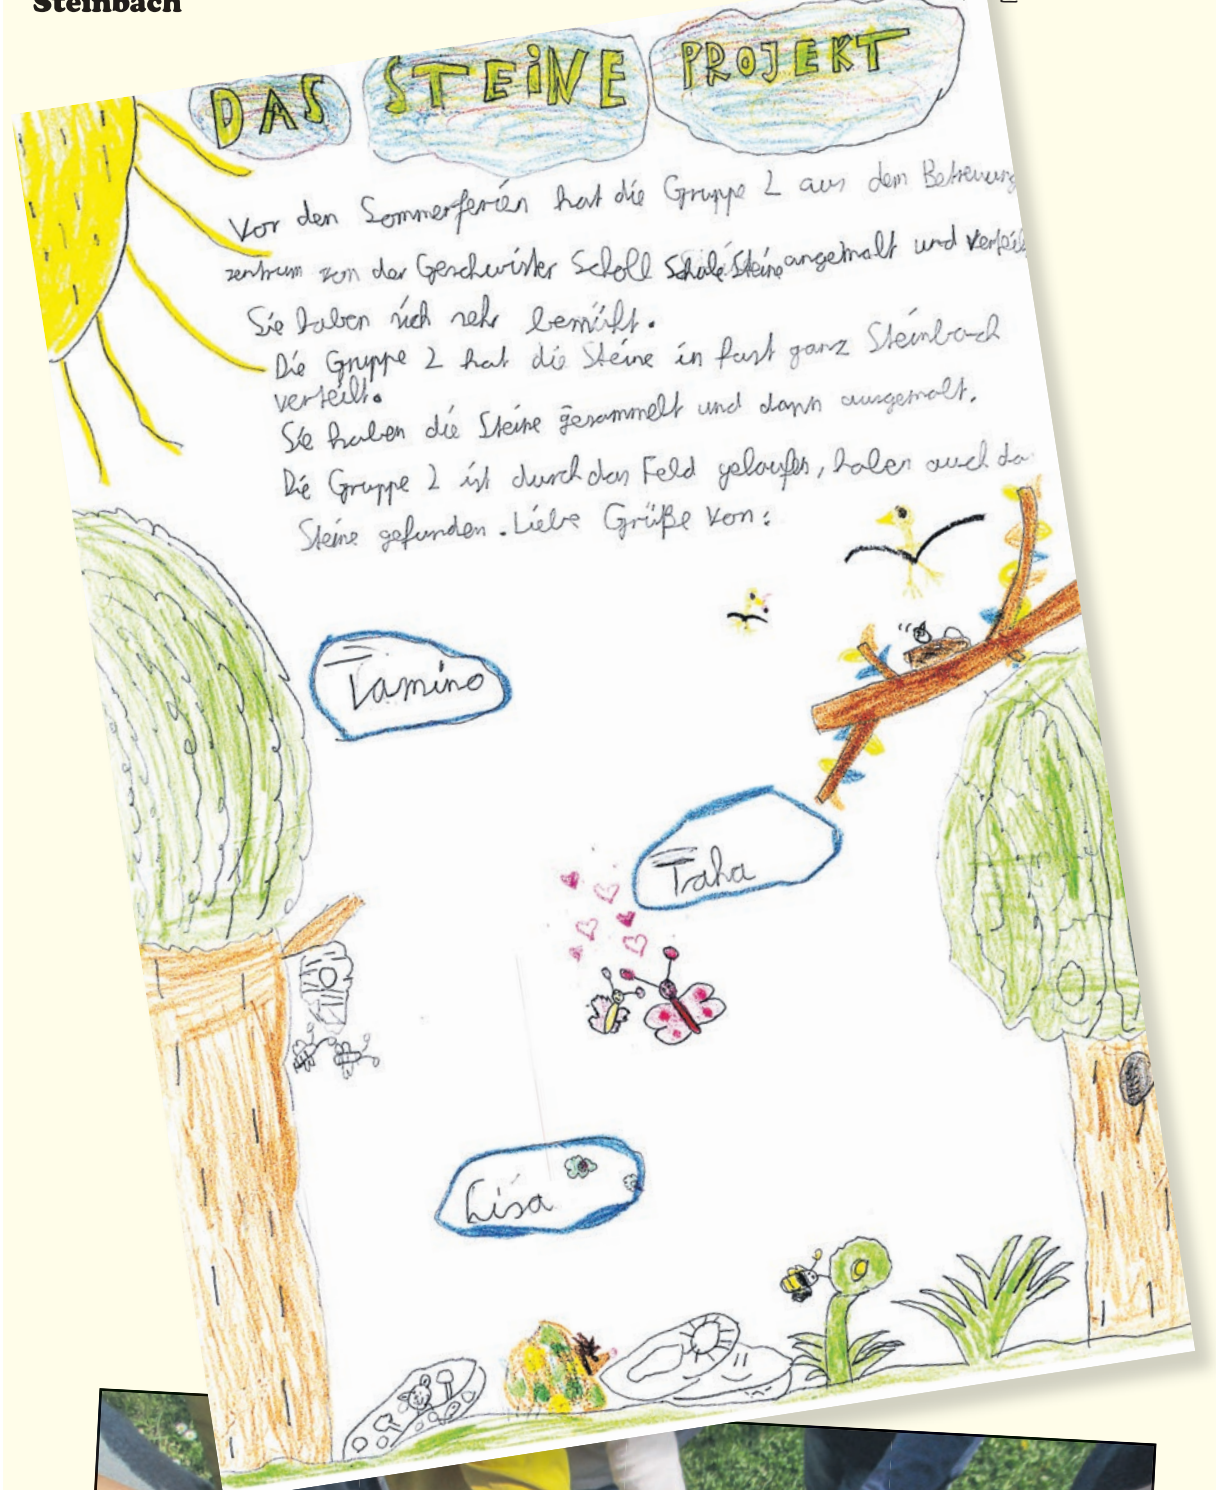 Steinbach
DAS STEINE PROJEKT
Vor den Sommerferien hat die Gruppe 2 aus dem Betreuung
zentrum von der Geschwister Scholl Schule Steine angemalt und verteil
Sie haben sich sehr bemüht.
Die Gruppe 2 hat die Steine in fast ganz Steinbach
verteilt.
Sie haben die Steine gesammelt und dann ausgemalt.
Die Gruppe 2 ist durch das Feld gelaufen, haben auch da
Steine gefunden. Liebe Grüße von:
Tamino
Taha
Lisa